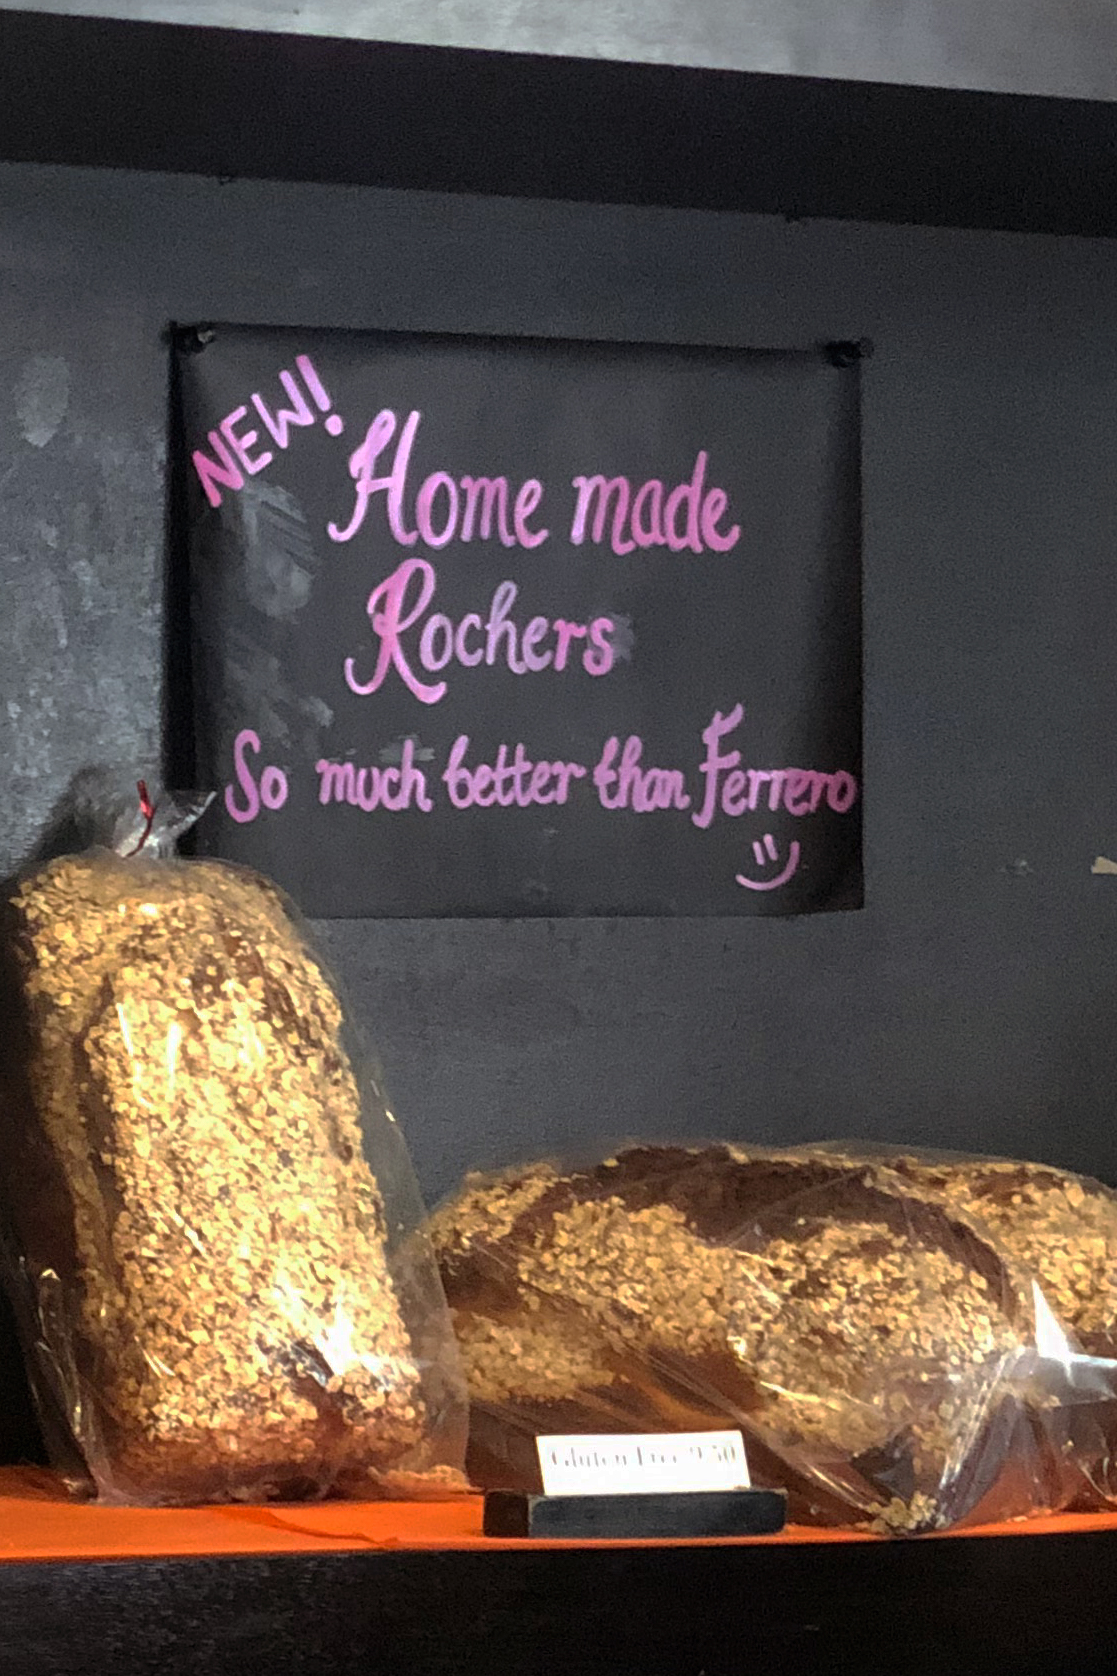 NEW!
Home made
Rochers
So much better than Ferrero
Gluten Free 9.50